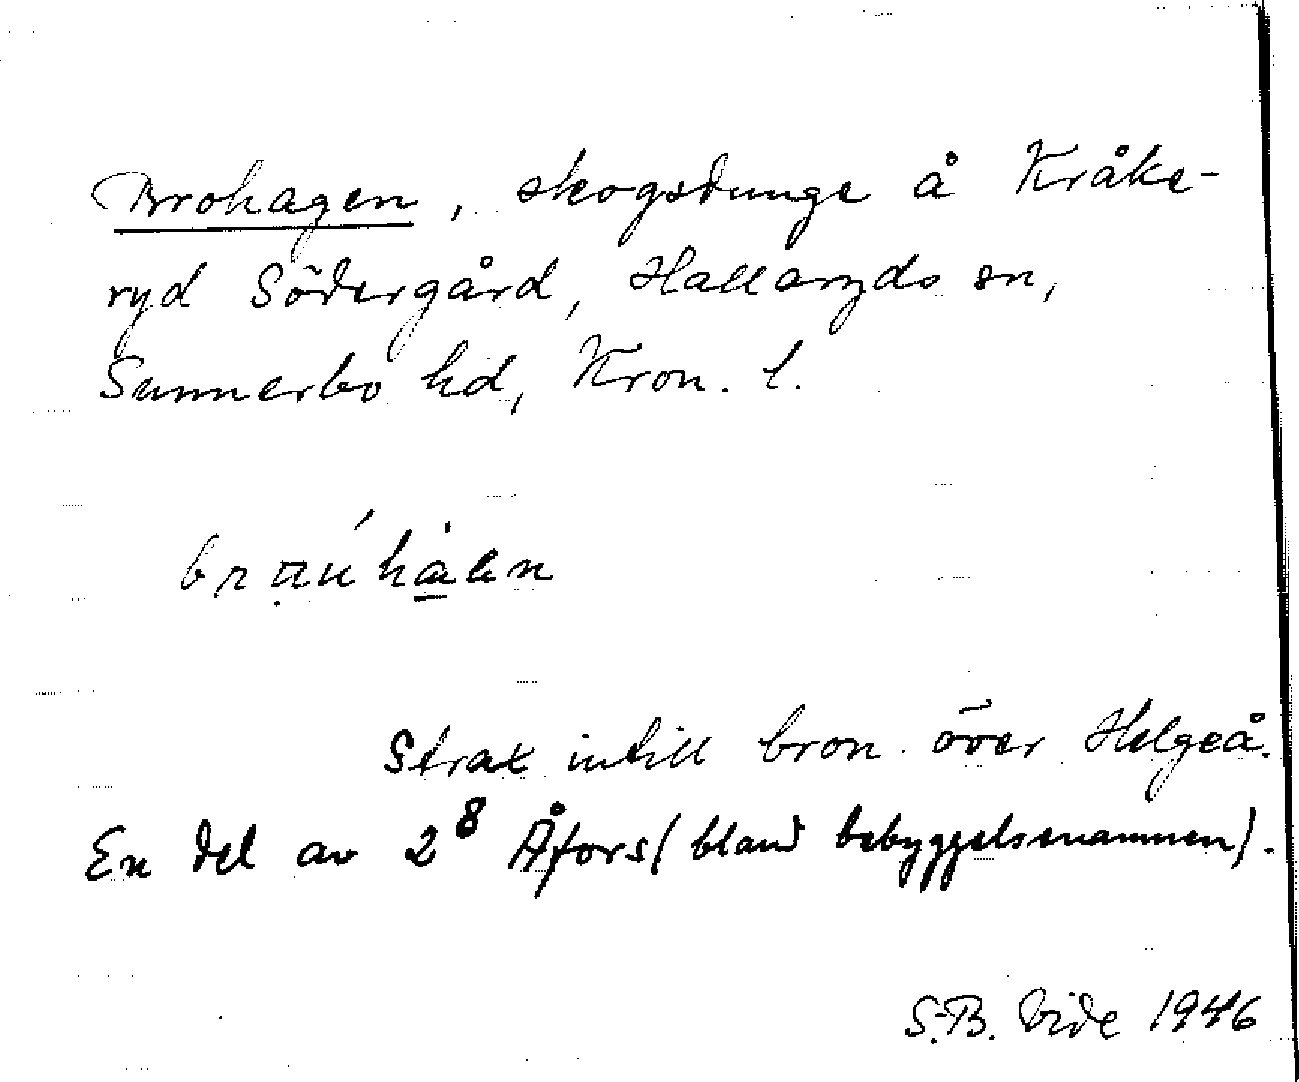 Brohagen, skogsdunge å Kråke-
ryd Södergård, Hallaryds sn,
Sunnerbo hd, Kron. l.
Strax intill bron över Helgeå.
En del av 2⁸ Åfors (bland bebyggelsenamnen).
S.-B. Vide 1946